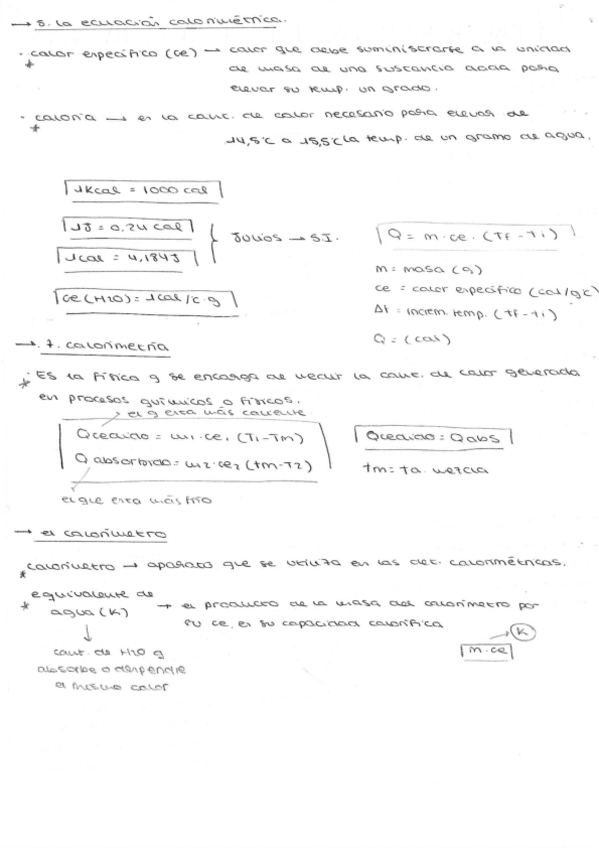 → 5. la ecuación calorimétrica.
· calor específico (ce) → calor que debe suministrarse a la unidad
* de masa de una sustancia dada para
elevar su temp. un grado.
· caloría → es la cant. de calor necesario para elevar de
* 14,5°C a 15,5°C la temp. de un gramo de agua.
1Kcal = 1000 cal
1J = 0,24 cal
1cal = 4,184J
} Julios → S.I.
ce (H2O) = 1cal/°c·g
Q = m·ce·(Tf-Ti)
m = masa (g)
ce = calor específico (cal/g°c)
Δt = increm. temp. (Tf-Ti)
Q = (cal)
→ 7. calorimetría
· Es la física q se encarga de medir la cant. de calor generada
* en procesos químicos o físicos.
→ el q esta más caliente
Qcedido = m1·ce1 (T1-Tm)
Q absorbido = m2·ce2 (tm-T2)
el que esta más frío
Qcedido = Qabs
tm = ta mezcla
→ el calorímetro
* calorímetro → aparato que se utiliza en las det. calorimétricas.
equivalente de
* agua (K) → el producto de la masa del calorímetro por
su ce, es su capacidad calorífica
↓
cant. de H2O q
absorbe o desprende
el mismo calor
m·ce → K